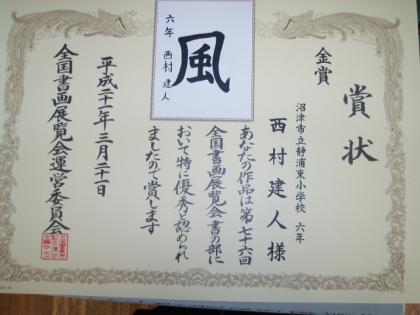 賞状
金賞
沼津市立静浦東小学校 六年
西村建人様
あなたの作品は第七十六回
全国書画展覧会書の部に
おいて特に優秀と認められ
ましたので賞します
平成二十一年三月二十一日
全国書画展覧会運営委員会
風
六年 西村建人